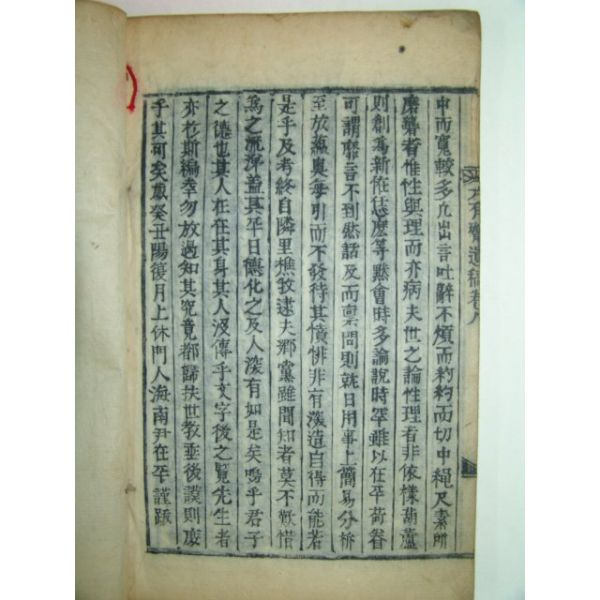 中而寬較多凡出言吐辭不煩而約約而切中繩尺素所
磨礱者惟性與理而亦病夫世之論性理者非依樣葫蘆
則創爲新依恁麽等黙會時多論說時罕雖以在平荷眷
可謂靡言不到慙話及而稟問則就日用事上簡易分析
至放蘊奧每引而不發待其憤悱非有深造自得而能若
是乎及考終自隣里樵牧逮夫鄕黨雖聞知者莫不歎惜
爲之流涕盖其平日德化之及人深有如是矣嗚乎君子
之德也其人在在其身其人沒傳乎文字後之覽先生者
亦於斯編幸勿放過知其究竟都歸扶世敎垂後謨則庶
乎其可矣歲癸丑陽復月上休門人海南尹在平謹跋
遺稿卷八